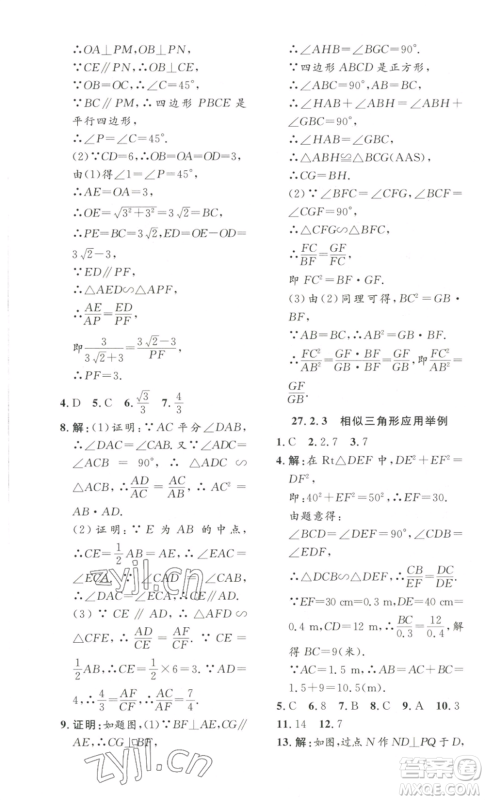 ∴OA⊥PM,OB⊥PN,
∵CE∥PN,∴OB⊥CE,
∵OB=OC=3,
∴∠OBC=∠C=45°,
∵BC∥PM,∴四边形 PBCE 是
平行四边形,
∴∠P=∠C=45°.
(2)∵CD=6,∴OD=OB=3,
由(1)得∠1=∠2=45°,
∴AE=OA=3,
∴OE=√(3²+3²)=3√2,
∴PE=BC=OB+OC=3√2,DE=
3√2-3,
∵ED∥PF,
∴△AED∽△APF,
∴AE/AP=ED/PF,
即3/(3√2+3)=(3√2-3)/PF,
∴PF=3.
4.D 5.C 6.√3/3 7.4/3
8.解:(1)证明:∵AC平分∠DAB,
∴∠DAC=∠CAB,又∵∠ADC=
∠ACB = 90°, ∴△ADC∽
△ACB,∴AD/AC=AC/AB,∴AC²=
AB·AD.
(2)证明:∵E 为 AB 的中点,
∴CE=1/2AB=AE,∴∠EAC=
∠ECA,∵∠DAC=∠CAB,
∴∠DAC=∠ECA,∴CE∥AD.
(3)∵CE∥AD,∴△AFD∽
△CFE,∴AD/CE=AF/CF,∵CE=
1/2AB,∴CE=1/2×6=3.∵AD=
4,∴4/3=AF/CF,∴AC/AF=7/4.
9.证明:如题图,(1)∵BF⊥AE,CG∥
AE,∴CG⊥BF,
∴∠AHB=∠BGC=90°.
∵四边形 ABCD 是正方形,
∴∠ABC=90°,AB=BC.
∴∠HAB+∠ABH=∠ABH+
∠GBC=90°.
∴∠HAB=∠GBC.
∴△ABH≌△BCG(AAS),
∴CG=BH.
(2) ∵ ∠BFC = ∠CFG,∠BCF =
∠CGF=90°,
∴△CFG∽△BFC,
∴FC/BF=GF/FC,
即 FC²=BF·GF.
(3)由(2)同理可得,BC²=BG·
BF,
∵AB=BC,∴AB²=BG·BF,
∴FC²/AB²=GF·BF/BG·BF=GF/GB,即FC²/AB²=
GF/GB.
27.2.3 相似三角形应用举例
1.C 2.2.7 3.7
4.解:在 Rt△DEF 中,DE²+EF²=
FD²,
即:40²+EF²=50²,∴EF=30.
由题意得:
∠BCD=∠DEF=90°,∠CDB=
∠EDF,
∴△DCB∽△DEF,∴CB/EF=DC/DE,
∵EF=30 cm=0.3 m,DE=40 cm=
0.4 m,CD=12 m,∴BC/0.3=12/0.4,解
得BC=9(米).
∵AC=1.5 m,∴AB=AC+BC=
1.5+9=10.5(m).
5.C 6.8 7.B 8.C 9.A 10.3
11.14 12.7
13.解:如图,过点N作ND⊥PQ于D,
zyjl.cn
zyjl.cn
答案圈
MXQE.COM